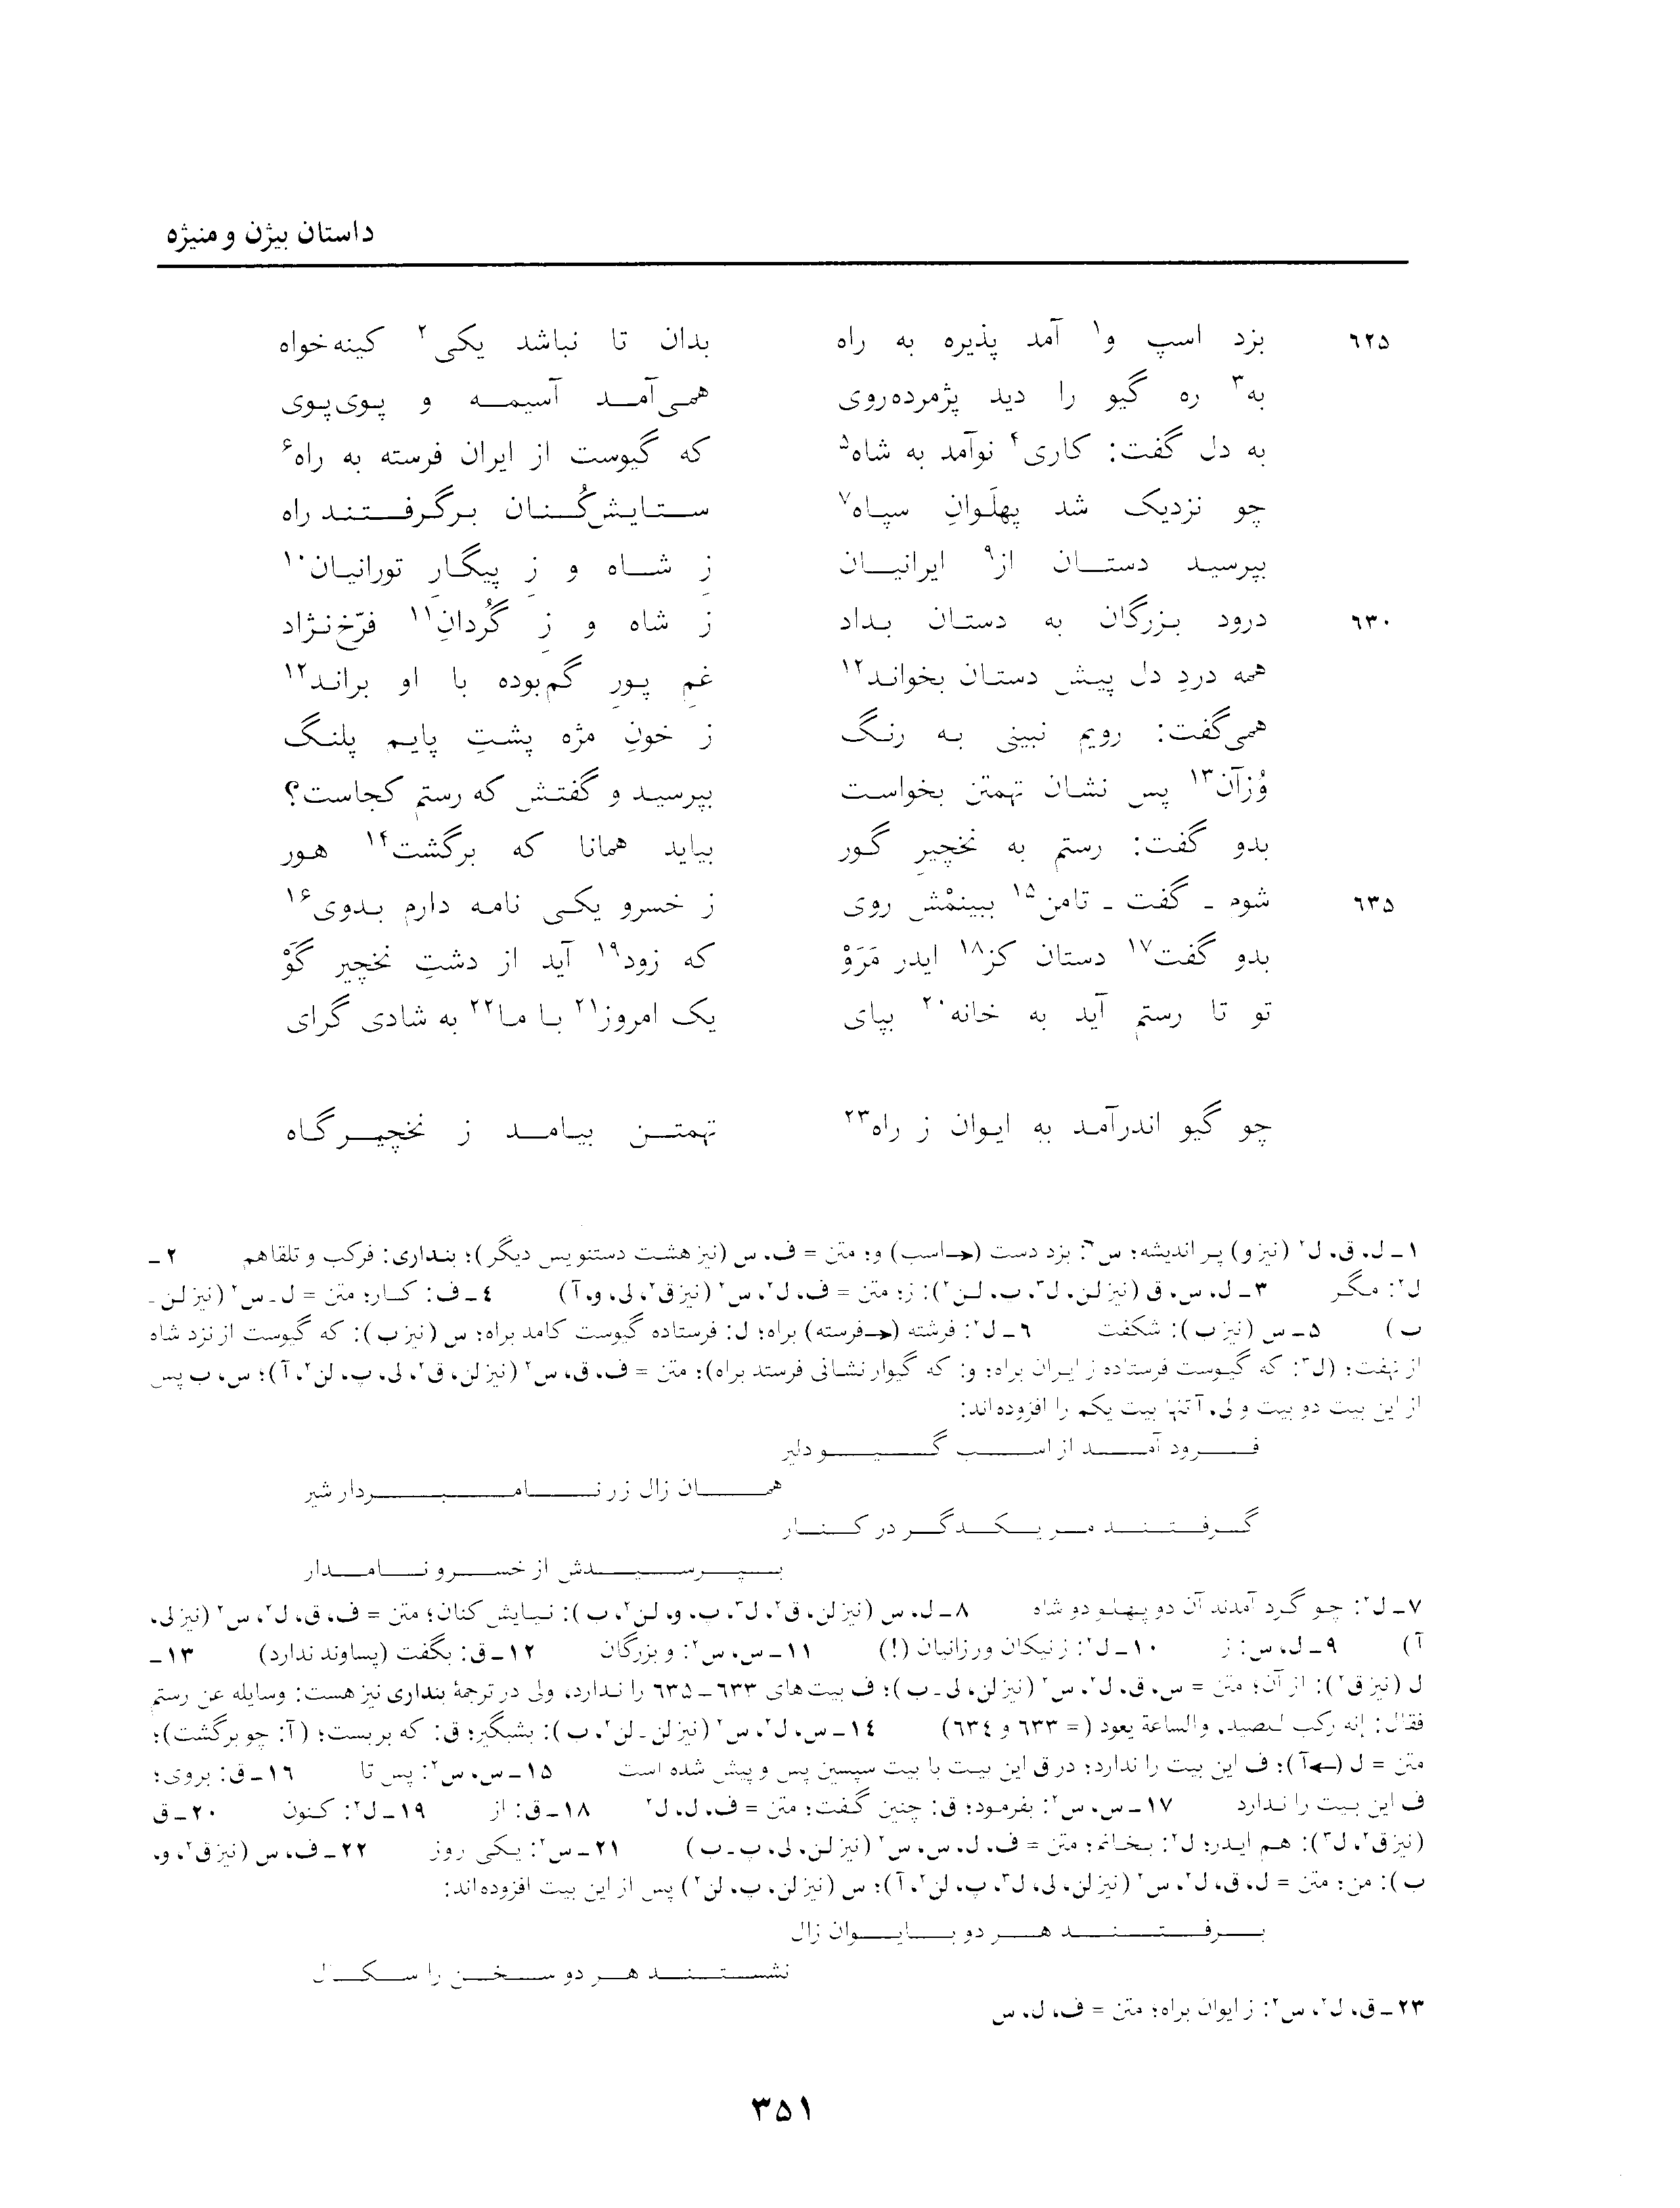 داستان بیژن و منیژه
۶۲۵ بزد اسپ و۱ آمد پذیره به راه بدان تا نباشد یکی۲ کینه‌خواه
به۳ ره گیو را دید پژمرده‌روی همی‌آمد آسیمه و پوی‌پوی
به دل گفت: کاری۴ نوآمد به شاه۵ که گیوست از ایران فرسته به راه۶
چو نزدیک شد پهلَوانِ سپاه۷ ستایش‌کُنان برگرفتند راه
بپرسید دستان از۹ ایرانیان زِ شاه و زِ پیگارِ تورانیان۱۰
۶۳۰ درود بزرگان به دستان بداد زِ شاه و زِ گُردانِ۱۱ فرّخ‌نژاد
همه دردِ دل پیش دستان بخواند۱۲ غمِ پورِ گم‌بوده با او براند۱۲
همی‌گفت: رویم نبینی به رنگ ز خونِ مژه پشتِ پایم پلنگ
وُزآن۱۳ پس نشان تهمتن بخواست بپرسید و گفتش که رستم کجاست؟
بدو گفت: رستم به نخچیرِ گور بیاید همانا که برگشت۱۴ هور
۶۳۵ شوم ـ گفت ـ تامن۱۵ ببینمْش روی ز خسرو یکی نامه دارم بدوی۱۶
بدو گفت۱۷ دستان کز۱۸ ایدر مَرَوْ که زود۱۹ آید از دشتِ نخچیر گَوْ
تو تا رستم آید به خانه۲۰ بپای یک امروز۲۱ با ما۲۲ به شادی گرای
چو گیو اندرآمد به ایوان ز راه۲۳ تهمتن بیامد ز نخچیرگاه
۱ـ ل، ق، ل۲ (نیز و) پر اندیشه؛ س۲: بزد دست (ـ>اسب) و؛ متن = ف، س (نیز هشت دستنویس دیگر)؛ بنداری: فرکب و تلقاهم ۲ـ
ل۲: مگر ۳ـ ل، س، ق (نیز لن، ل۳، ب، لن۲): ز؛ متن = ف، ل۲، س۲ (نیز ق۲، لی، و، آ) ۴ـ ف: کار؛ متن = ل ـ س۲ (نیز لن ـ
ب) ۵ـ س (نیز ب): شگفت ۶ـ ل۲: فرشته (ـ>فرسته) براه؛ ل: فرستاده گیوست کامد براه؛ س (نیز ب): که گیوست از نزد شاه
از نهفت؛ (ل۳: که گیوست فرستاده ز ایران براه؛ و: که گیوار نشانی فرستد براه)؛ متن = ف، ق، س۲ (نیز لن، ق۲، لی، پ، لن۲، آ)؛ س، ب پس
از این بیت دو بیت و لی، آ تنها بیت یکم را افزوده‌اند:
فرود آمد از اسب گیو دلیر
همان زال زر نامبردار شیر
گرفتند مر یکدگر در کنار
بپرسیدش از خسرو نامدار
۷ـ ل۲: چو گرد آمدند آن دو پهلو دو شاه ۸ـ ل، س (نیز لن، ق۲، ل۳، پ، و، لن۲، ب): نیایش کنان؛ متن = ف، ق، ل۲، س۲ (نیز لی،
آ) ۹ـ ل، س: ز ۱۰ـ ل۲: ز نیکان ورزانیان (!) ۱۱ـ س، س۲: و بزرگان ۱۲ـ ق: بگفت (پساوند ندارد) ۱۳ـ
ل (نیز ق۲): از آن؛ متن = س، ق، ل۲، س۲ (نیز لن، لی ـ ب)؛ ف بیت‌های ۶۳۳ ـ ۶۳۵ را ندارد، ولی در ترجمهٔ بنداری نیز هست: وسایله عن رستم
فقال: إنه رکب لصید، والساعة یعود (= ۶۳۳ و ۶۳۴) ۱۴ـ س، ل۲، س۲ (نیز لن ـ لن۲، ب): بشبگیر؛ ق: که بربست؛ (آ: چو برگشت)؛
متن = ل (<ـ آ)؛ ف این بیت را ندارد؛ در ق این بیت با بیت سپسین پس و پیش شده است ۱۵ـ س، س۲: پس تا ۱۶ـ ق: بروی؛
ف این بیت را ندارد ۱۷ـ س، س۲: بفرمود؛ ق: چنین گفت؛ متن = ف، ل، ل۲ ۱۸ـ ق: از ۱۹ـ ل۲: کنون ۲۰ـ ق
(نیز ق۲، ل۳): هم ایدر؛ ل۲: بخانم؛ متن = ف، ل، س، س۲ (نیز لن، لی، پ ـ ب) ۲۱ـ س۲: یکی روز ۲۲ـ ف، س (نیز ق۲، و،
ب): من؛ متن = ل، ق، ل۲، س۲ (نیز لن، لی، ل۳، پ، لن۲، آ)؛ س (نیز لن، پ، لن۲) پس از این بیت افزوده‌اند:
برفتند هر دو بایوان زال
نشستند هر دو سخن را سکال
۲۳ـ ق، ل۲، س۲: ز ایوان براه؛ متن = ف، ل، س
۳۵۱